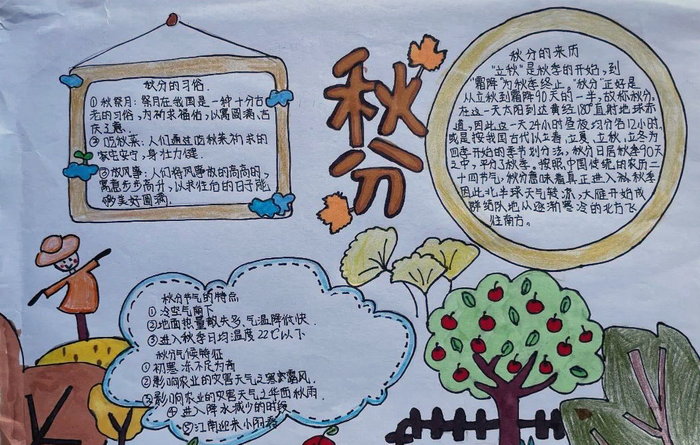 秋分的习俗.
①秋祭月: 祭月在我国是一种十分古
老的习俗,为祈求福佑,以寓团圆吉
庆之意.
②吃秋菜: 人们通过吃秋菜祈求的
家宅安宁,身壮力健.
③放风筝: 人们将风筝放的高高的,
寓意步步高升,以求往后的日子能
够美好圆满.
秋分
秋分的来历
"立秋"是秋季的开始,到
"霜降"为秋季终止。"秋分"正好是
从立秋到霜降90天的一半,故称秋分。
在这一天太阳到达黄经180°直射地球赤
道,因此这一天24小时昼夜均分各12小时.
或是按我国古代以立春、立夏、立秋、立冬为
四季开始的季节划分法,秋分日居秋季90天
之中,平分了秋季。按照中国传统的农历二
十四节气,秋分意味着真正进入秋季秋季
因此北半球天气转凉,大雁开始成
群结队地从逐渐寒冷的北方飞
往南方。
秋分节气的特点
①冷空气南下
②地面热量散失多,气温降低快.
③进入秋季日均温度22℃以下
秋分气候特征
①初寒,冻不足为奇
②影响农业的灾害天气之寒露风.
③影响农业的灾害天气之华西秋雨
④进入降水减少的时段
⑤江南迎来小阳春